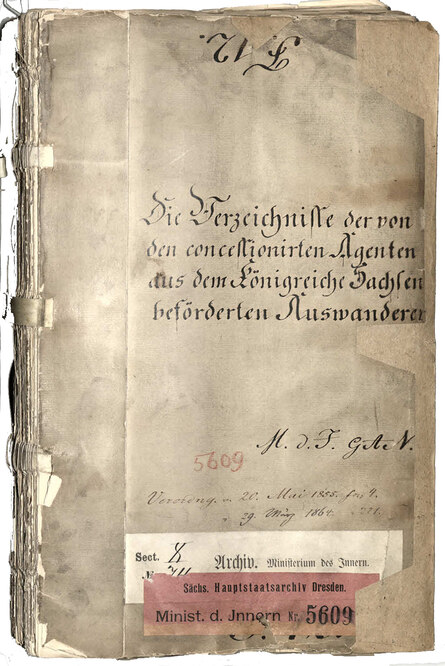 Die Verzeichnisse der von
den concessionirten Agenten
aus dem Königreiche Sachsen
beförderten Auswanderer
M. d. J.
5609
20. Mai 1855.
29. März 1864.
Sect. X
№
Archiv. Ministerium des Innern.
Sächs. Hauptstaatsarchiv Dresden.
Minist. d. Jnnern Nr. 5609